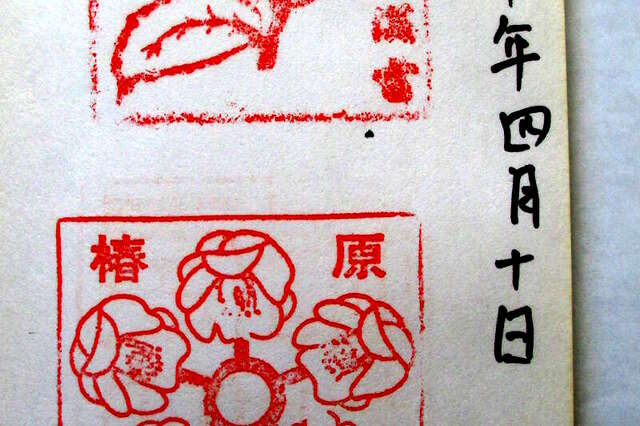 年四月十日
原
椿